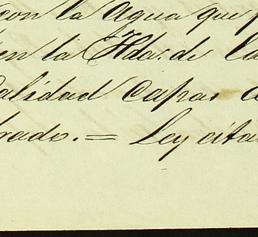 con la Agua que
en la Hda. de la
calidad capas
rado.= Ley cita